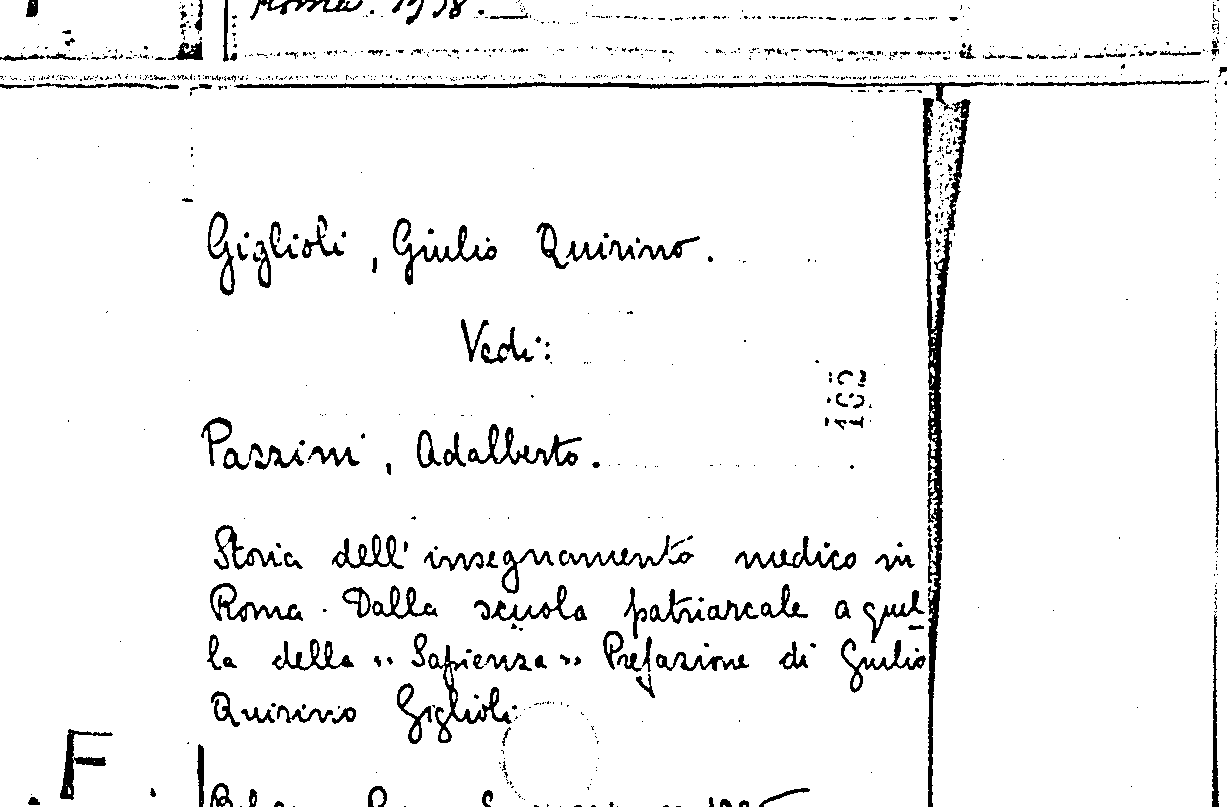 Roma. 1938.
Giglioli, Giulio Quirino.
Vedi:
102
Pazzini, Adalberto.
Storia dell'insegnamento medico in
Roma. Dalla scuola patriarcale a quel
la della "Sapienza" Prefazione di Giulio
Quirino Giglioli.
F